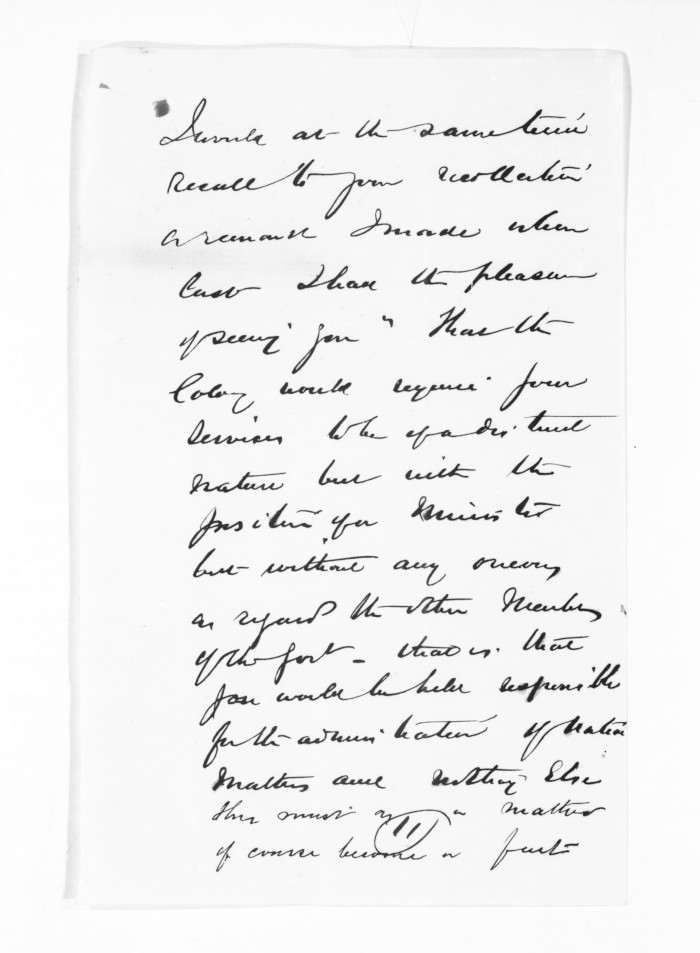 I would at the same time
recall to your recollection
a remark I made when
last I had the pleasure
of seeing you " That the
Colony would require your
services to be of a distinct
nature but with the
position of a Minister
but without any
as regards the other Members
of the Govt - that is that
you would be held responsible
for the administration of Native
matters and nothing Else
this must as a matter
of course become a fact
11